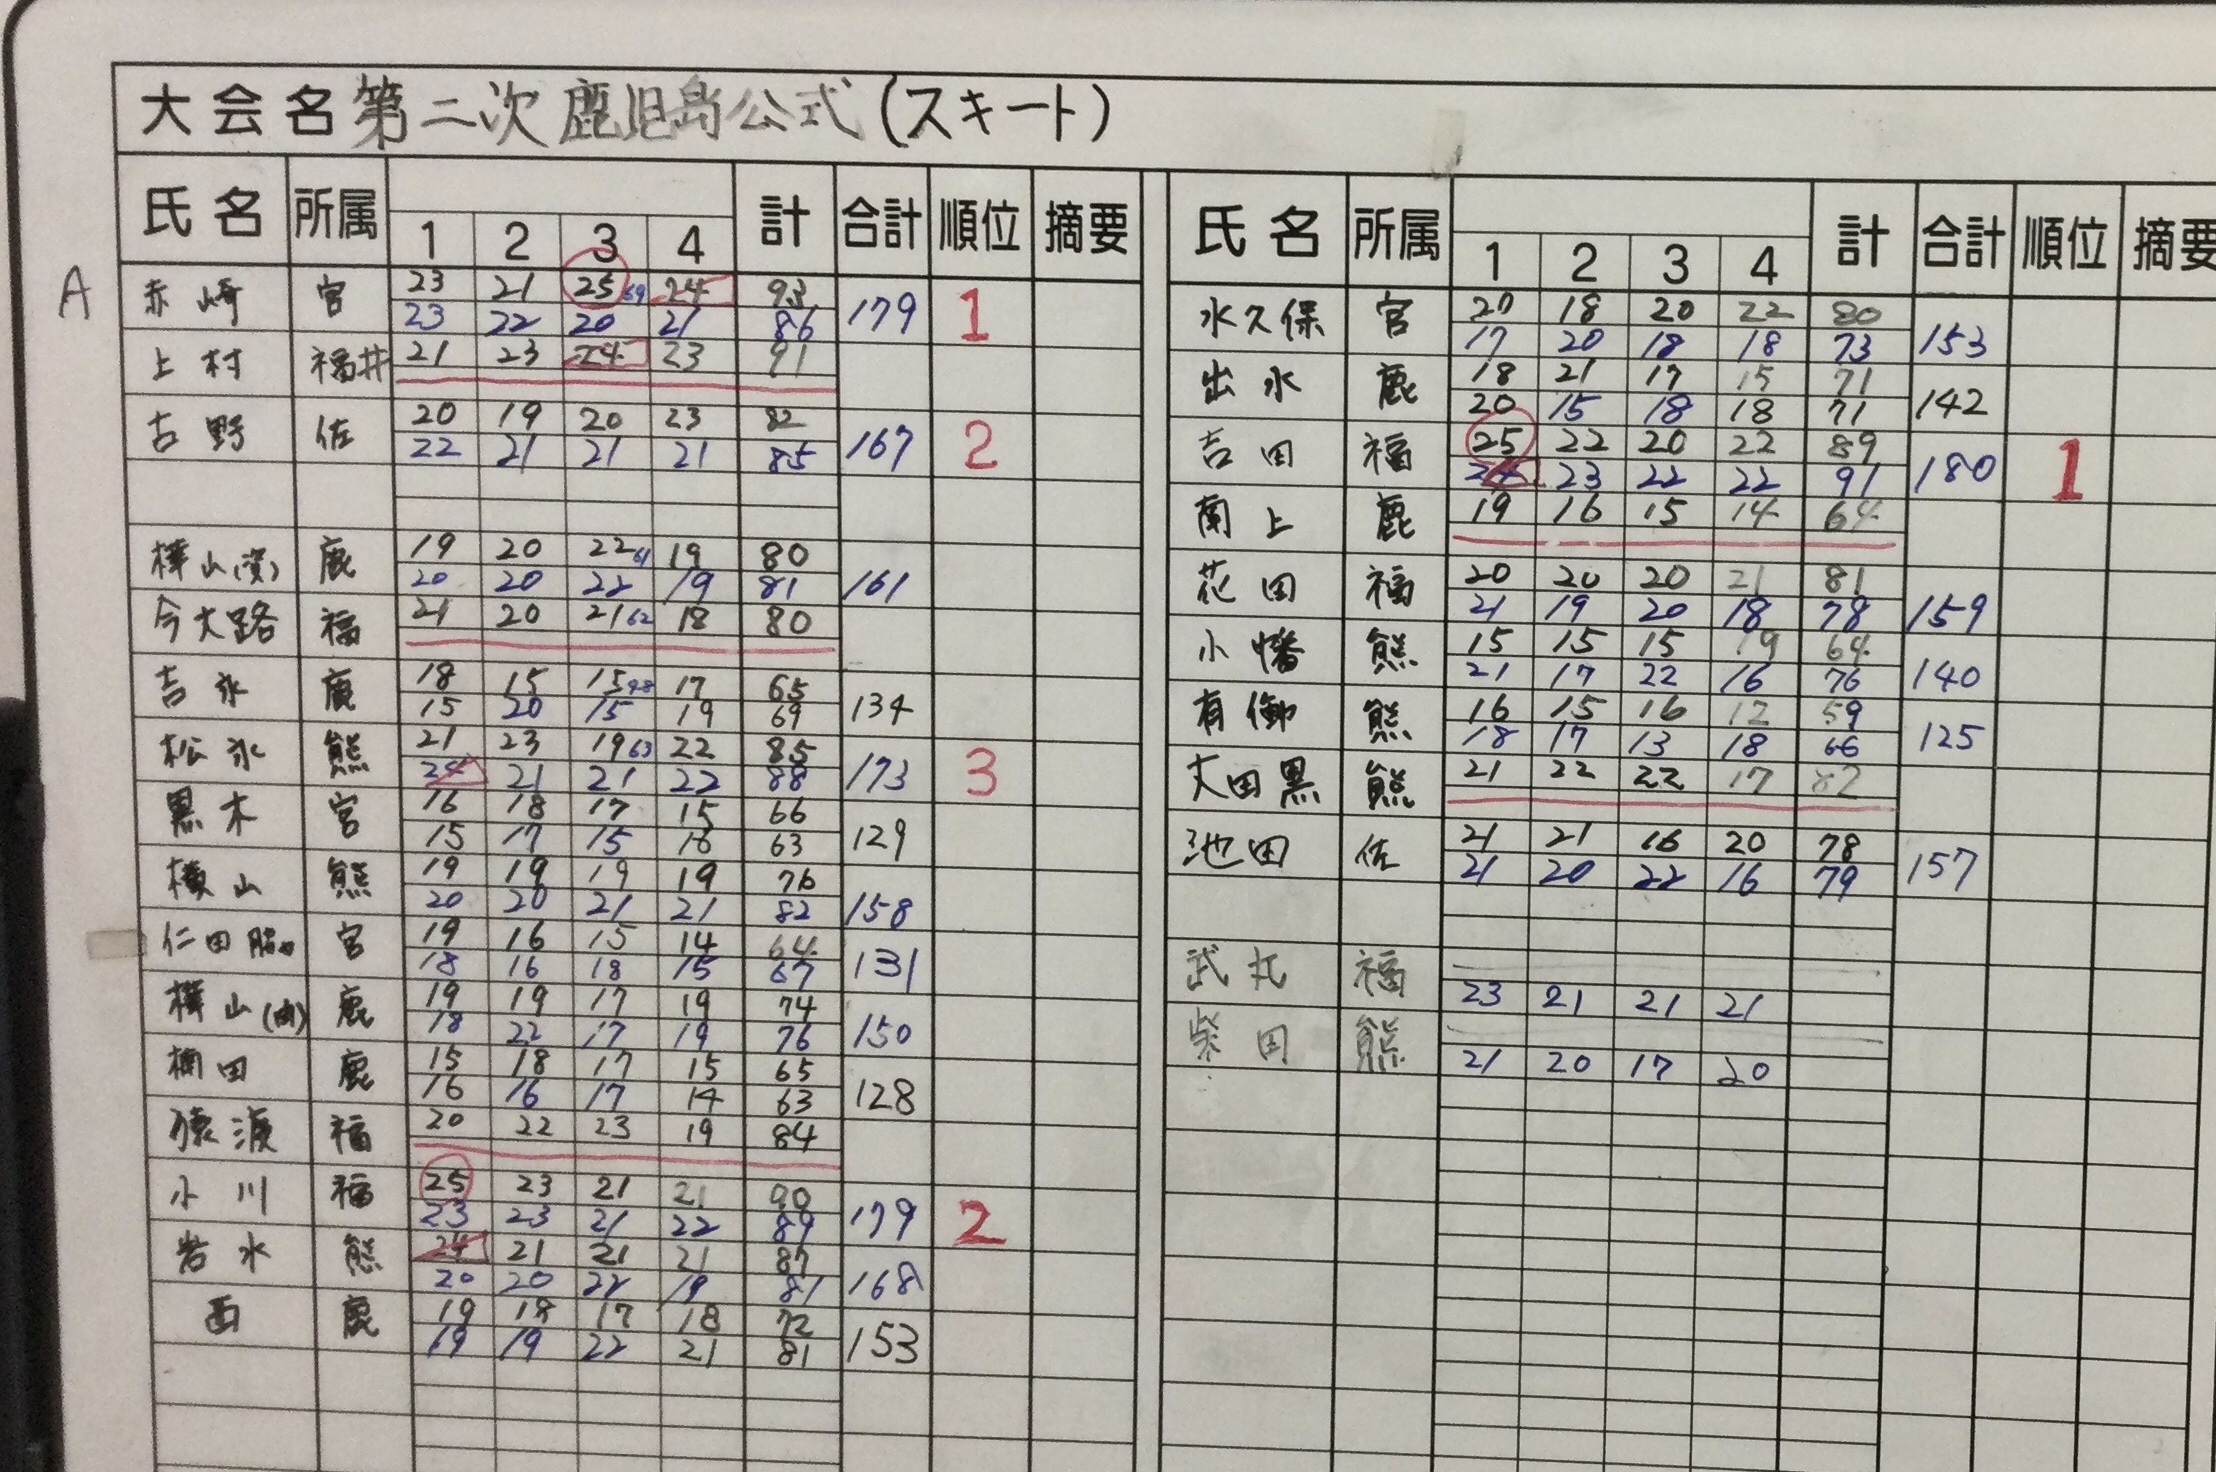 大会名 第二次 鹿児島公式(スキート)
氏名 所属 1 2 3 4 計 合計 順位 摘要
A
赤崎 宮 23 21 25 69 24 93 179 1
23 22 20 21 86
上村 福井 21 23 24 23 91
古野 佐 20 19 20 23 82 167 2
22 21 21 21 85
樺山(資) 鹿 19 20 22 61 19 80 161
20 20 22 19 81
今大路 福 21 20 21 62 18 80
吉永 鹿 18 15 15 48 17 65 134
15 20 15 19 69
松永 熊 21 23 19 63 22 85 173 3
24 21 21 22 88
黒木 宮 16 18 17 15 66 129
15 17 15 16 63
横山 熊 19 19 19 19 76 158
20 20 21 21 82
仁田脇 宮 19 16 15 14 64 131
18 16 18 15 67
樺山 鹿 19 19 17 19 74 150
18 22 17 19 76
楠田 鹿 15 18 17 15 65 128
16 16 17 14 63
猿渡 福 20 22 23 19 84
小川 福 25 23 21 21 90 179 2
23 23 21 22 89
岩水 熊 24 21 21 21 87 168
20 20 22 19 81
西 鹿 19 18 17 18 72 153
19 19 22 21 81
氏名 所属 1 2 3 4 計 合計 順位 摘要
水久保 宮 20 18 20 22 80 153
17 20 18 18 73
出水 鹿 18 21 17 15 71 142
20 15 18 18 71
吉田 福 25 22 20 22 89 180 1
24 23 22 22 91
南上 鹿 19 16 15 14 64
花田 福 20 20 20 21 81 159
21 19 20 18 78
小幡 熊 15 15 15 19 64 140
21 17 22 16 76
有働 熊 16 15 16 12 59 125
18 17 13 18 66
大田黒 熊 21 22 22 17 82
池田 佐 21 21 16 20 78 157
21 20 22 16 79
武丸 福
23 21 21 21
柴田 熊
21 20 17 20